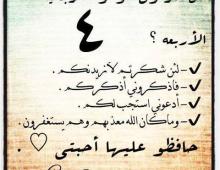 ٤
الأربعه ؟
✓- لئن شكرتم لأزيدنكم .
✓- فاذكروني أذكركم .
✓- أدعوني استجب لكم .
✓- وماكان الله معذبهم وهم يستغفرون .
حافظو عليها أحبتي ♡ .